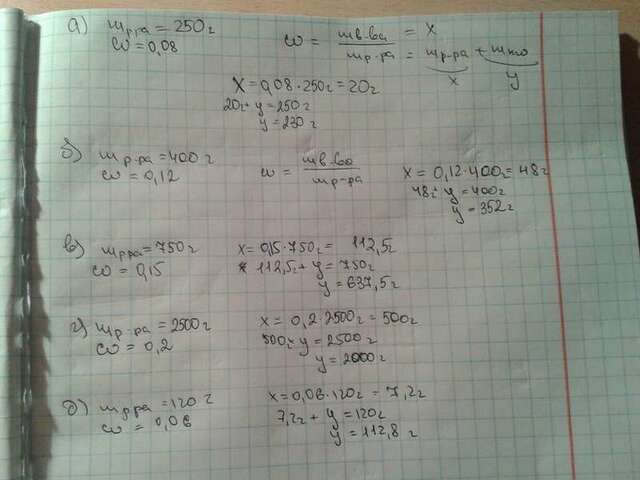 а) mр-ра = 250г
ω = 0,08
ω = mв.ва / mр-ра = x
mр-ра = mр-ра + mH₂O
x y
x = 0,08 · 250г = 20г
20г + y = 250г
y = 230г
б) mр-ра = 400 г
ω = 0,12
ω = mв.ва / mр-ра
x = 0,12 · 400г = 48г
48г + y = 400г
y = 352г
в) mр-ра = 750г
ω = 0,15
x = 0,15 · 750г = 112,5г
112,5г + y = 750г
y = 637,5г
г) mр-ра = 2500г
ω = 0,2
x = 0,2 · 2500г = 500г
500г + y = 2500г
y = 2000г
д) mр-ра = 120 г
ω = 0,06
x = 0,06 · 120г = 7,2г
7,2г + y = 120г
y = 112,8г